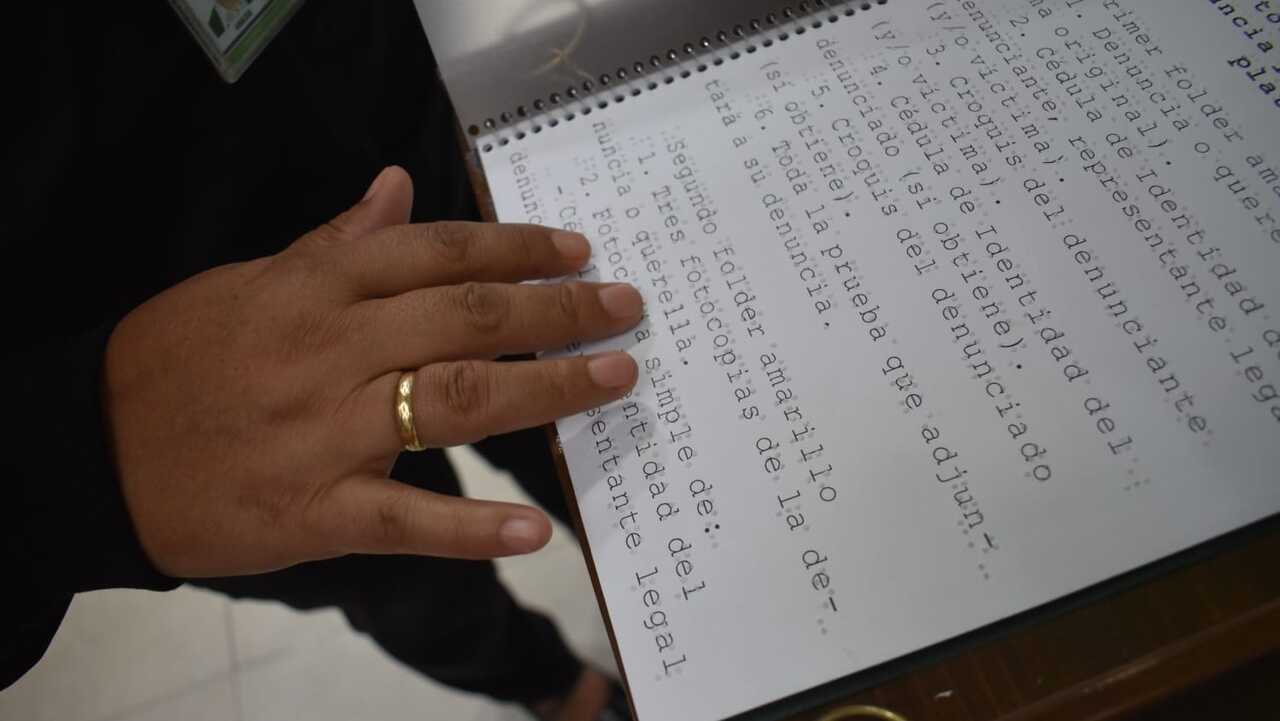 rimer folder am
1. Denuncia o quere
original).
2. Cédula de Identidad d
enunciante, representante lega
(y/o víctima).
3. Croquis del denunciante
(y/o víctima).
4. Cédula de Identidad del
denunciado (si obtiene).
5. Croquis del denunciado
(si obtiene).
6. Toda la prueba que adjun-
tará a su denuncia.
Segundo folder amarillo
1. Tres fotocopias de la de-
nuncia o querella.
2. Fotoc a simple de:
- Cé ntidad del
denunc sentante legal